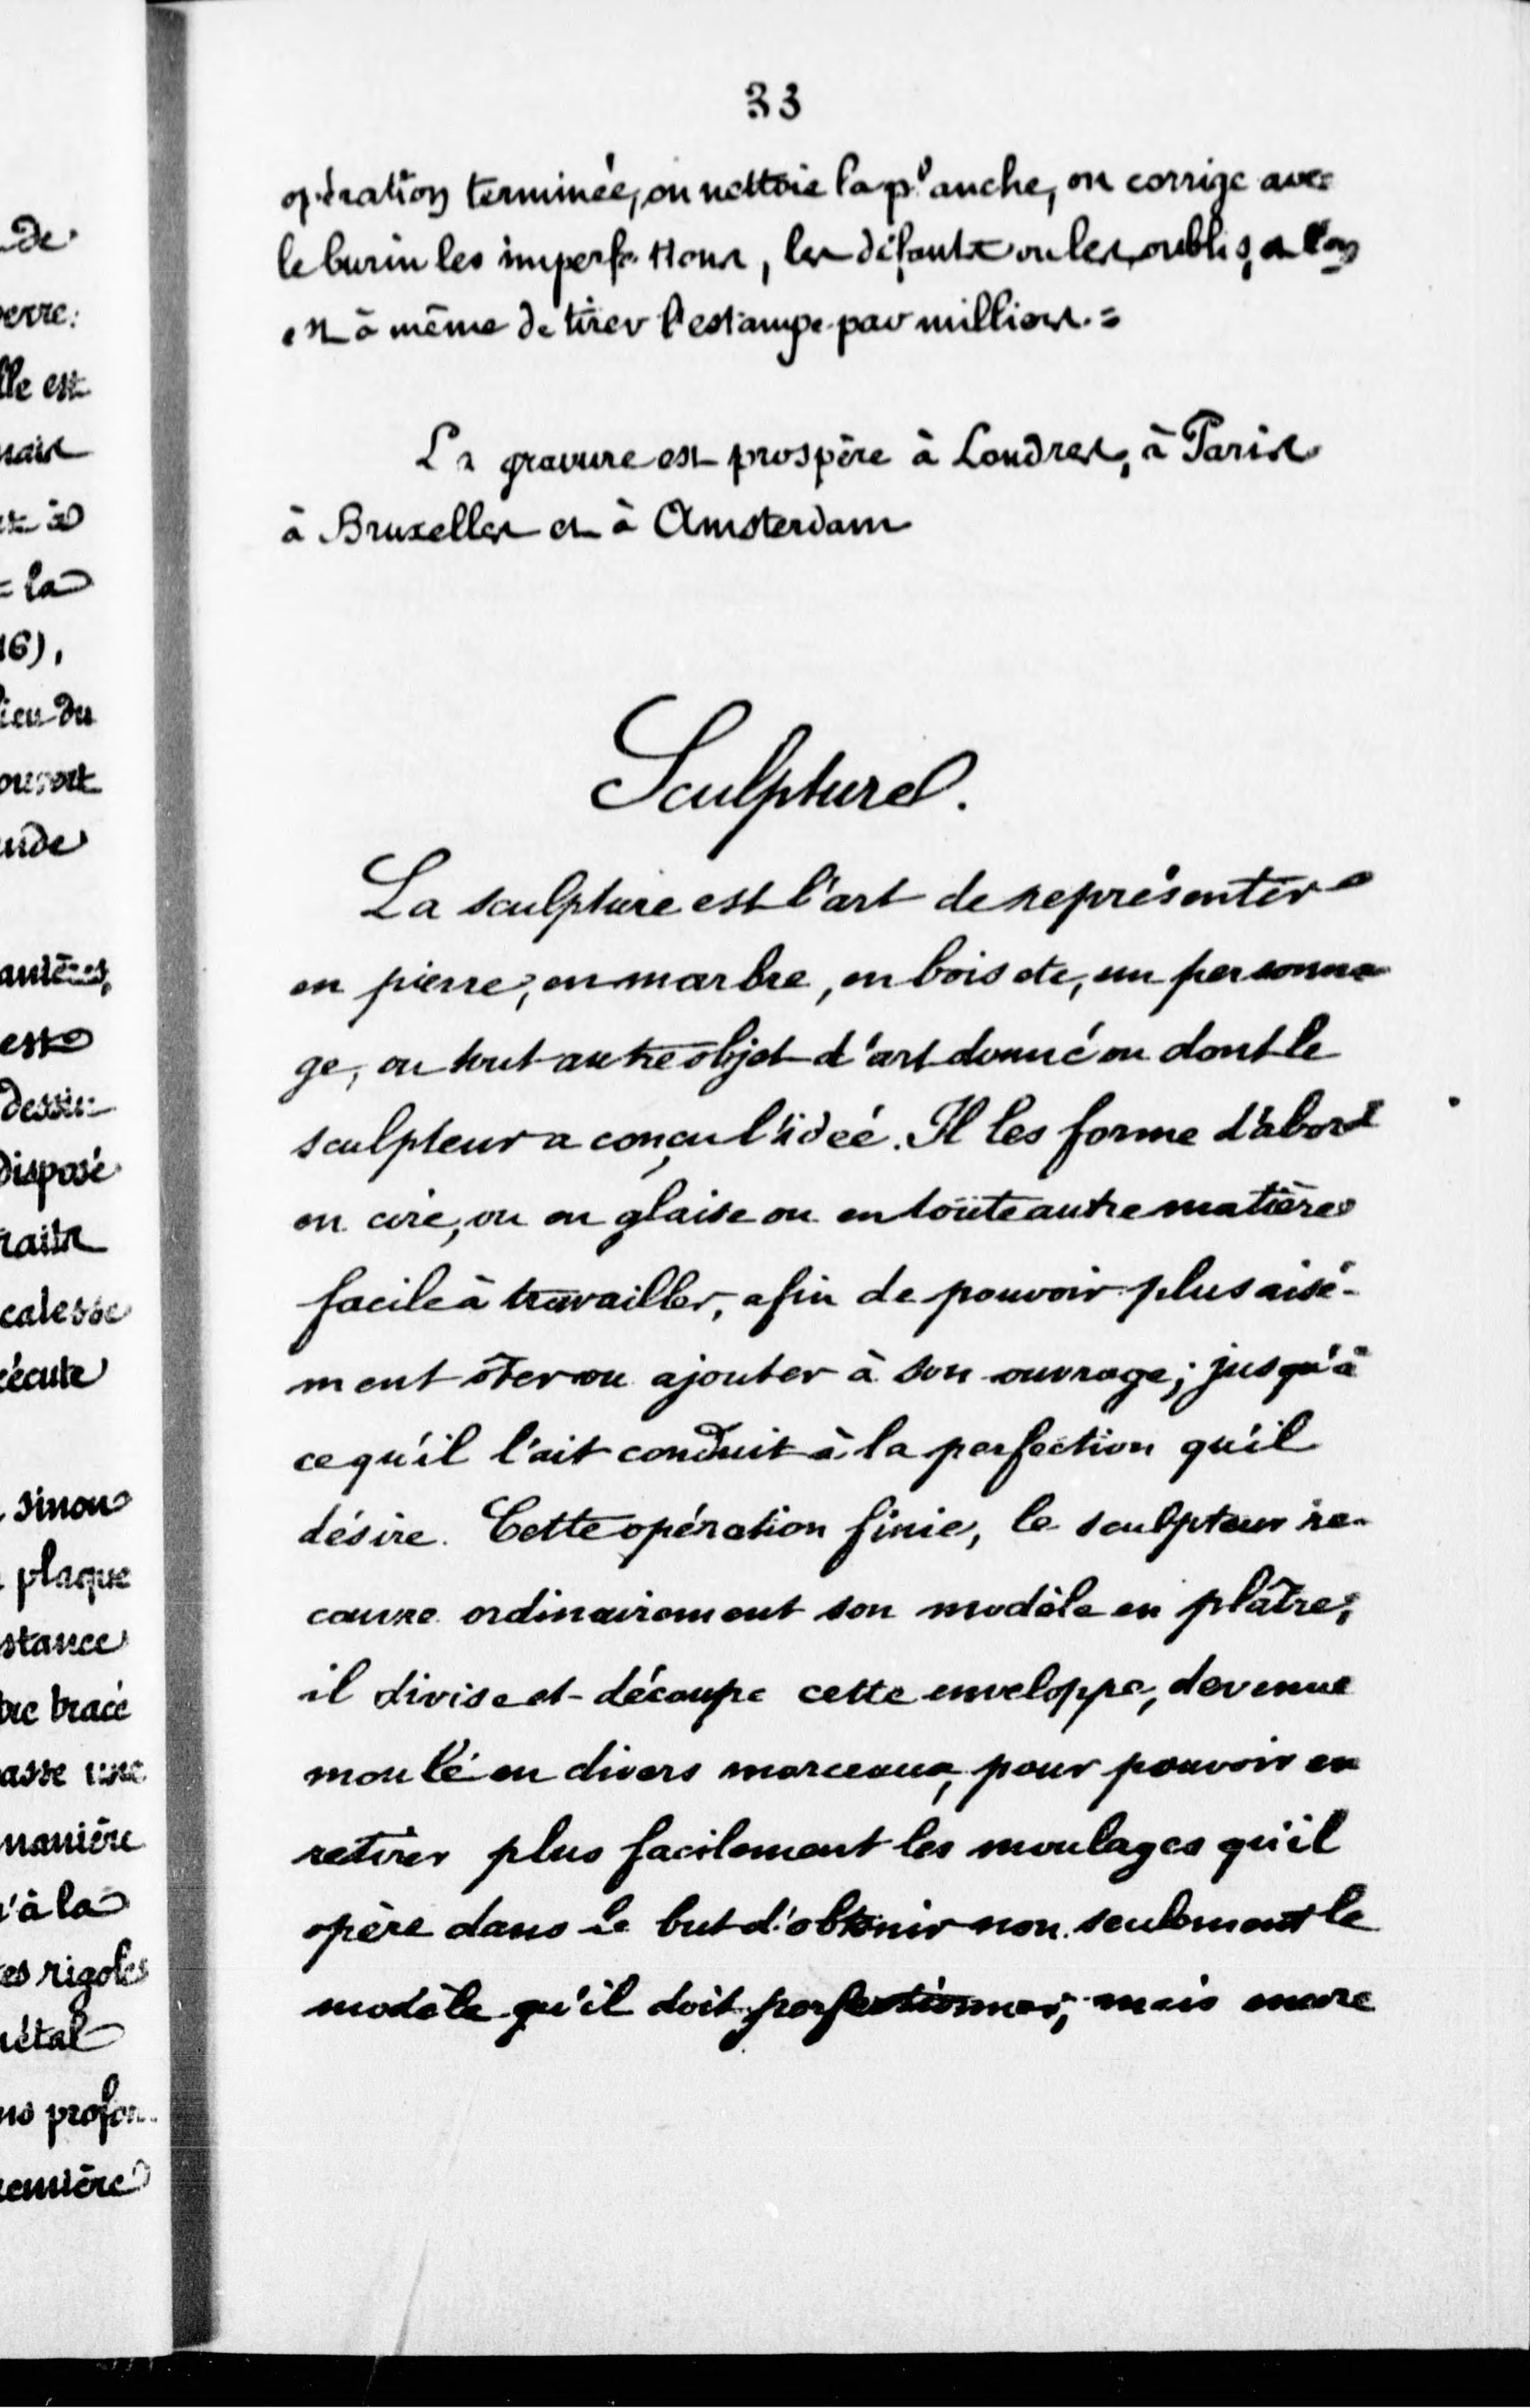 33
opération terminée, on nettoie la planche, on corrige avec
le burin les imperfections, les défauts ou les oublis, et l'on
est à même de tirer l'estampe par millions.=
La gravure est prospère à Londres, à Paris
à Bruxelles et à Amsterdam
Sculpture.
La sculpture est l'art de représenter
en pierre, en marbre, en bois etc, un personna
ge, ou tout autre objet d'art donné ou dont le
sculpteur a conçu l'idée. Il les forme d'abord
en cire, ou en glaise ou en toute autre matière
facile à travailler, afin de pouvoir plus aisé-
ment ôter ou ajouter à son ouvrage; jusqu'à
ce qu'il l'ait conduit à la perfection qu'il
désire. Cette opération finie, le sculpteur re-
couvre ordinairement son modèle en plâtre;
il divise et découpe cette enveloppe, devenue
moulé en divers morceaux, pour pouvoir en
retirer plus facilement les moulages qu'il
opère dans le but d'obtenir non seulement le
modèle qu'il doit perfectionner, mais encore
de
erre.
lle est
mais
et à
la
16),
lieu du
nde
est
dessin
disposé
traits
écute
sinon
plaque
stance
tre tracé
asse une
manière
'à la
es rigoles
métal
ns profon
remière